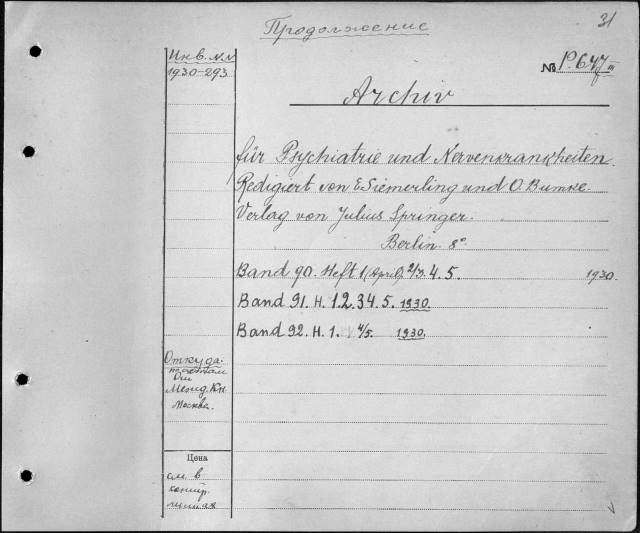 Продолжение
31
Инв. N.N
1930-293.
№ P.647 III
Archiv
für Psychiatrie und Nervenkrankheiten.
Redigiert von E. Siemerling und O. Bumke.
Verlag von Julius Springer.
Berlin. 8°
Band 90. Heft 1 (April), 2/3. 4. 5. 1930.
Band 91. H. 1. 2. 3 4. 5. 1930.
Band 92. H. 1. 4/5. 1930.
Откуда.
Межд. Кн.
Москва.
Цена
см. в